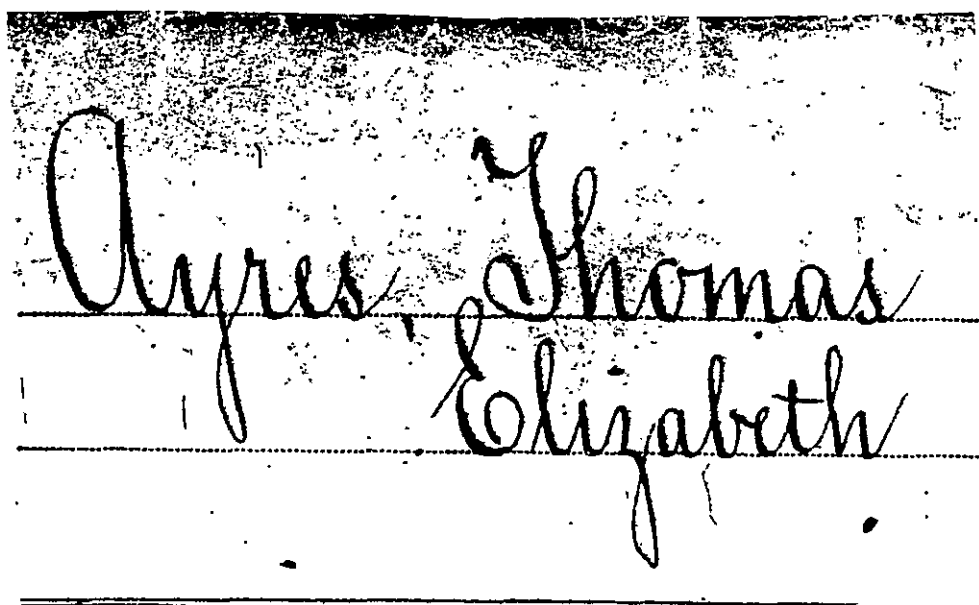 Ayres, Thomas
Elizabeth